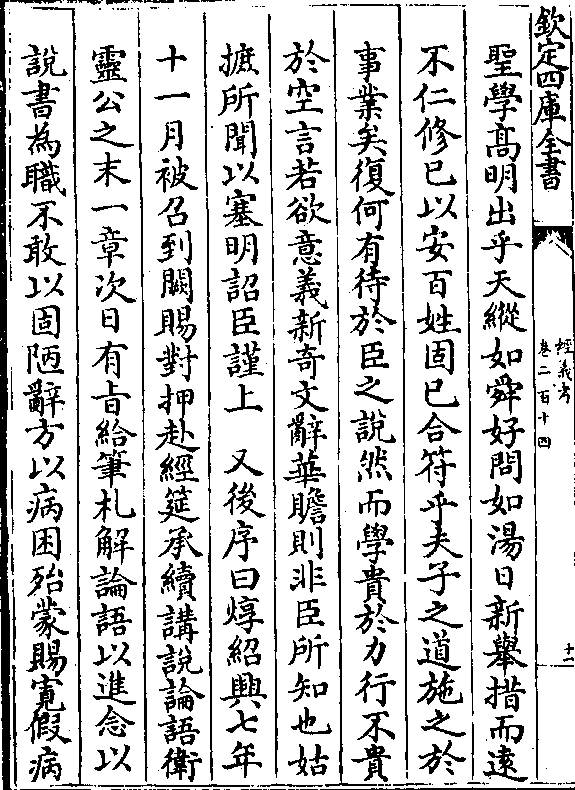 欽定四庫全書
經義考
卷二百十四
十一
聖學髙明出乎天縱如舜好問如湯日新舉措而逺
不仁修已以安百姓固已合符乎夫子之道施之於
事業矣復何有待於臣之說然而學貴於力行不貴
於空言若欲意義新竒文辭華贍則非臣所知也姑
摭所聞以塞明詔臣謹上　又後序曰焞紹興七年
十一月被召到闕賜對押赴經筵承續講說論語衛
靈公之末一章次日有㫖給筆札解論語以進念以
說書為職不敢以固陋辭方以病困殆蒙賜寛假病